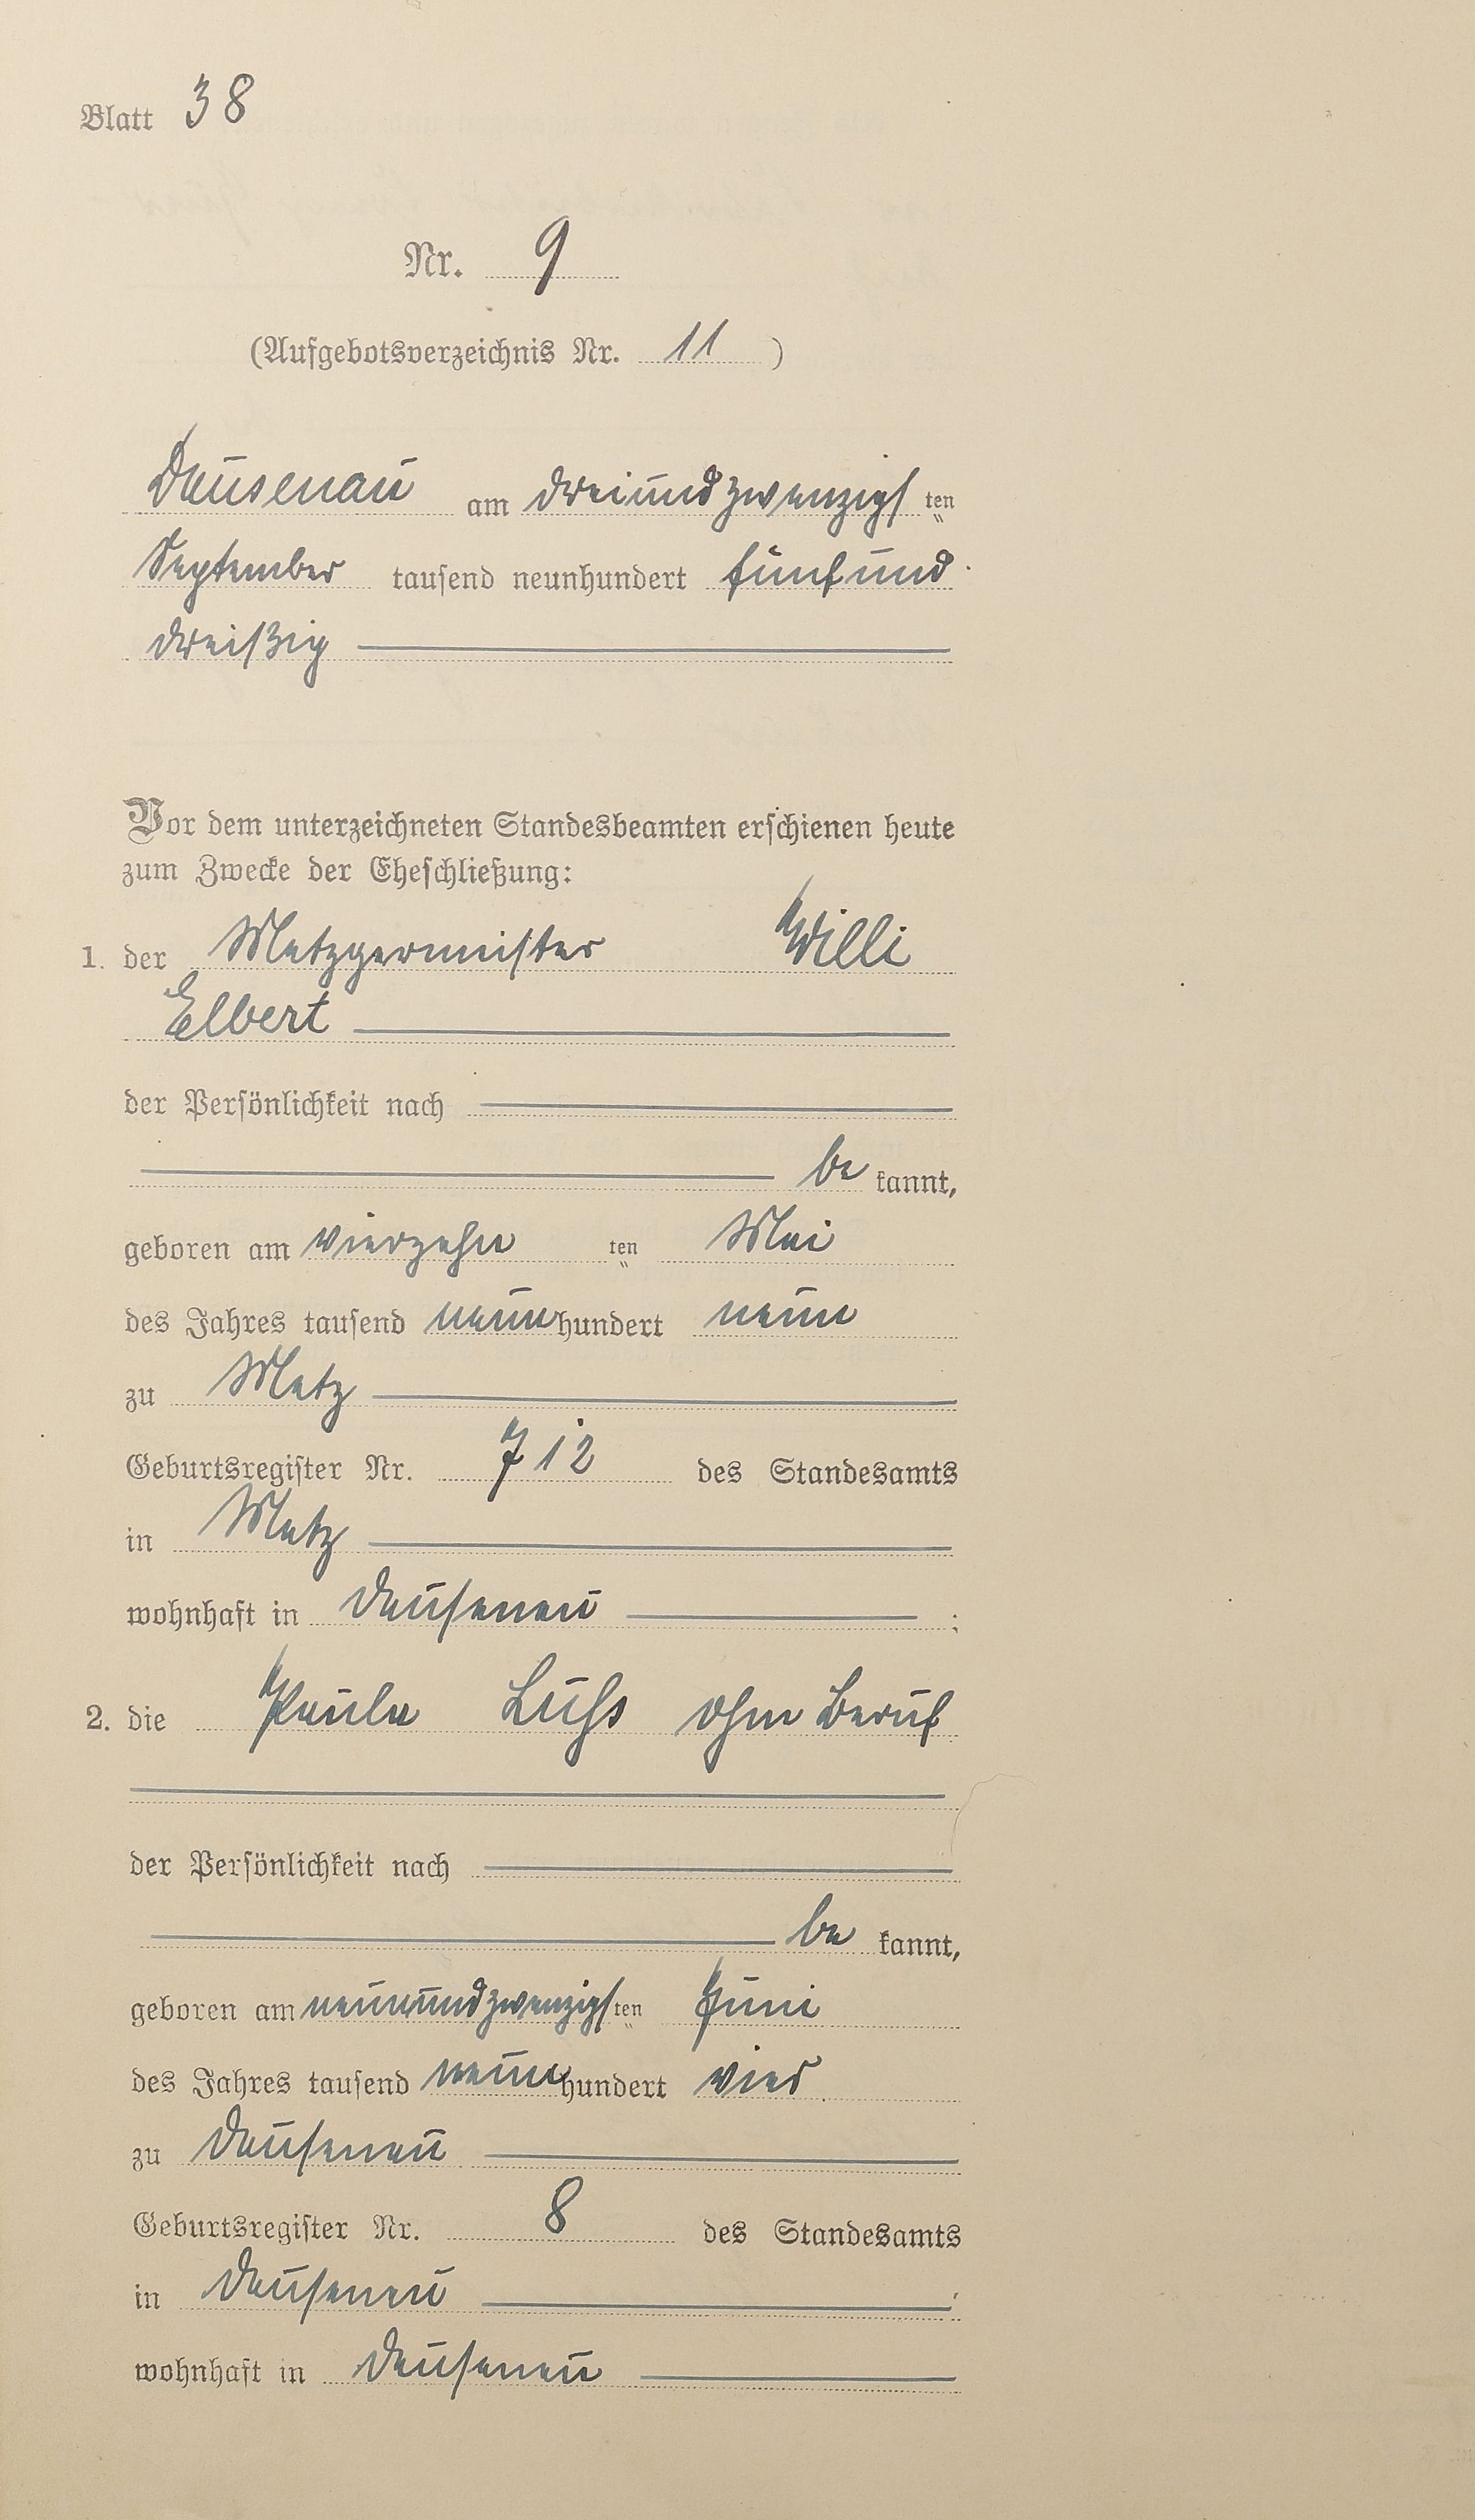 Blatt 38
Nr. 9
(Aufgebotsverzeichnis Nr. 11 )
Dausenau am dreiundzwanzigsten
September tausend neunhundert fünfund
dreißig
Vor dem unterzeichneten Standesbeamten erschienen heute
zum Zwecke der Eheschließung:
1. der Metzgermeister Willi
Elbert
der Persönlichkeit nach
be kannt,
geboren am vierzehn ten Mai
des Jahres tausend neunhundert neun
zu Metz
Geburtsregister Nr. 712 des Standesamts
in Metz
wohnhaft in Dausenau ;
2. die Paula ohne Beruf
der Persönlichkeit nach
be kannt,
geboren am neunundzwanzigsten Juni
des Jahres tausend neunhundert vier
zu Dausenau
Geburtsregister Nr. 8 des Standesamts
in Dausenau ;
wohnhaft in Dausenau